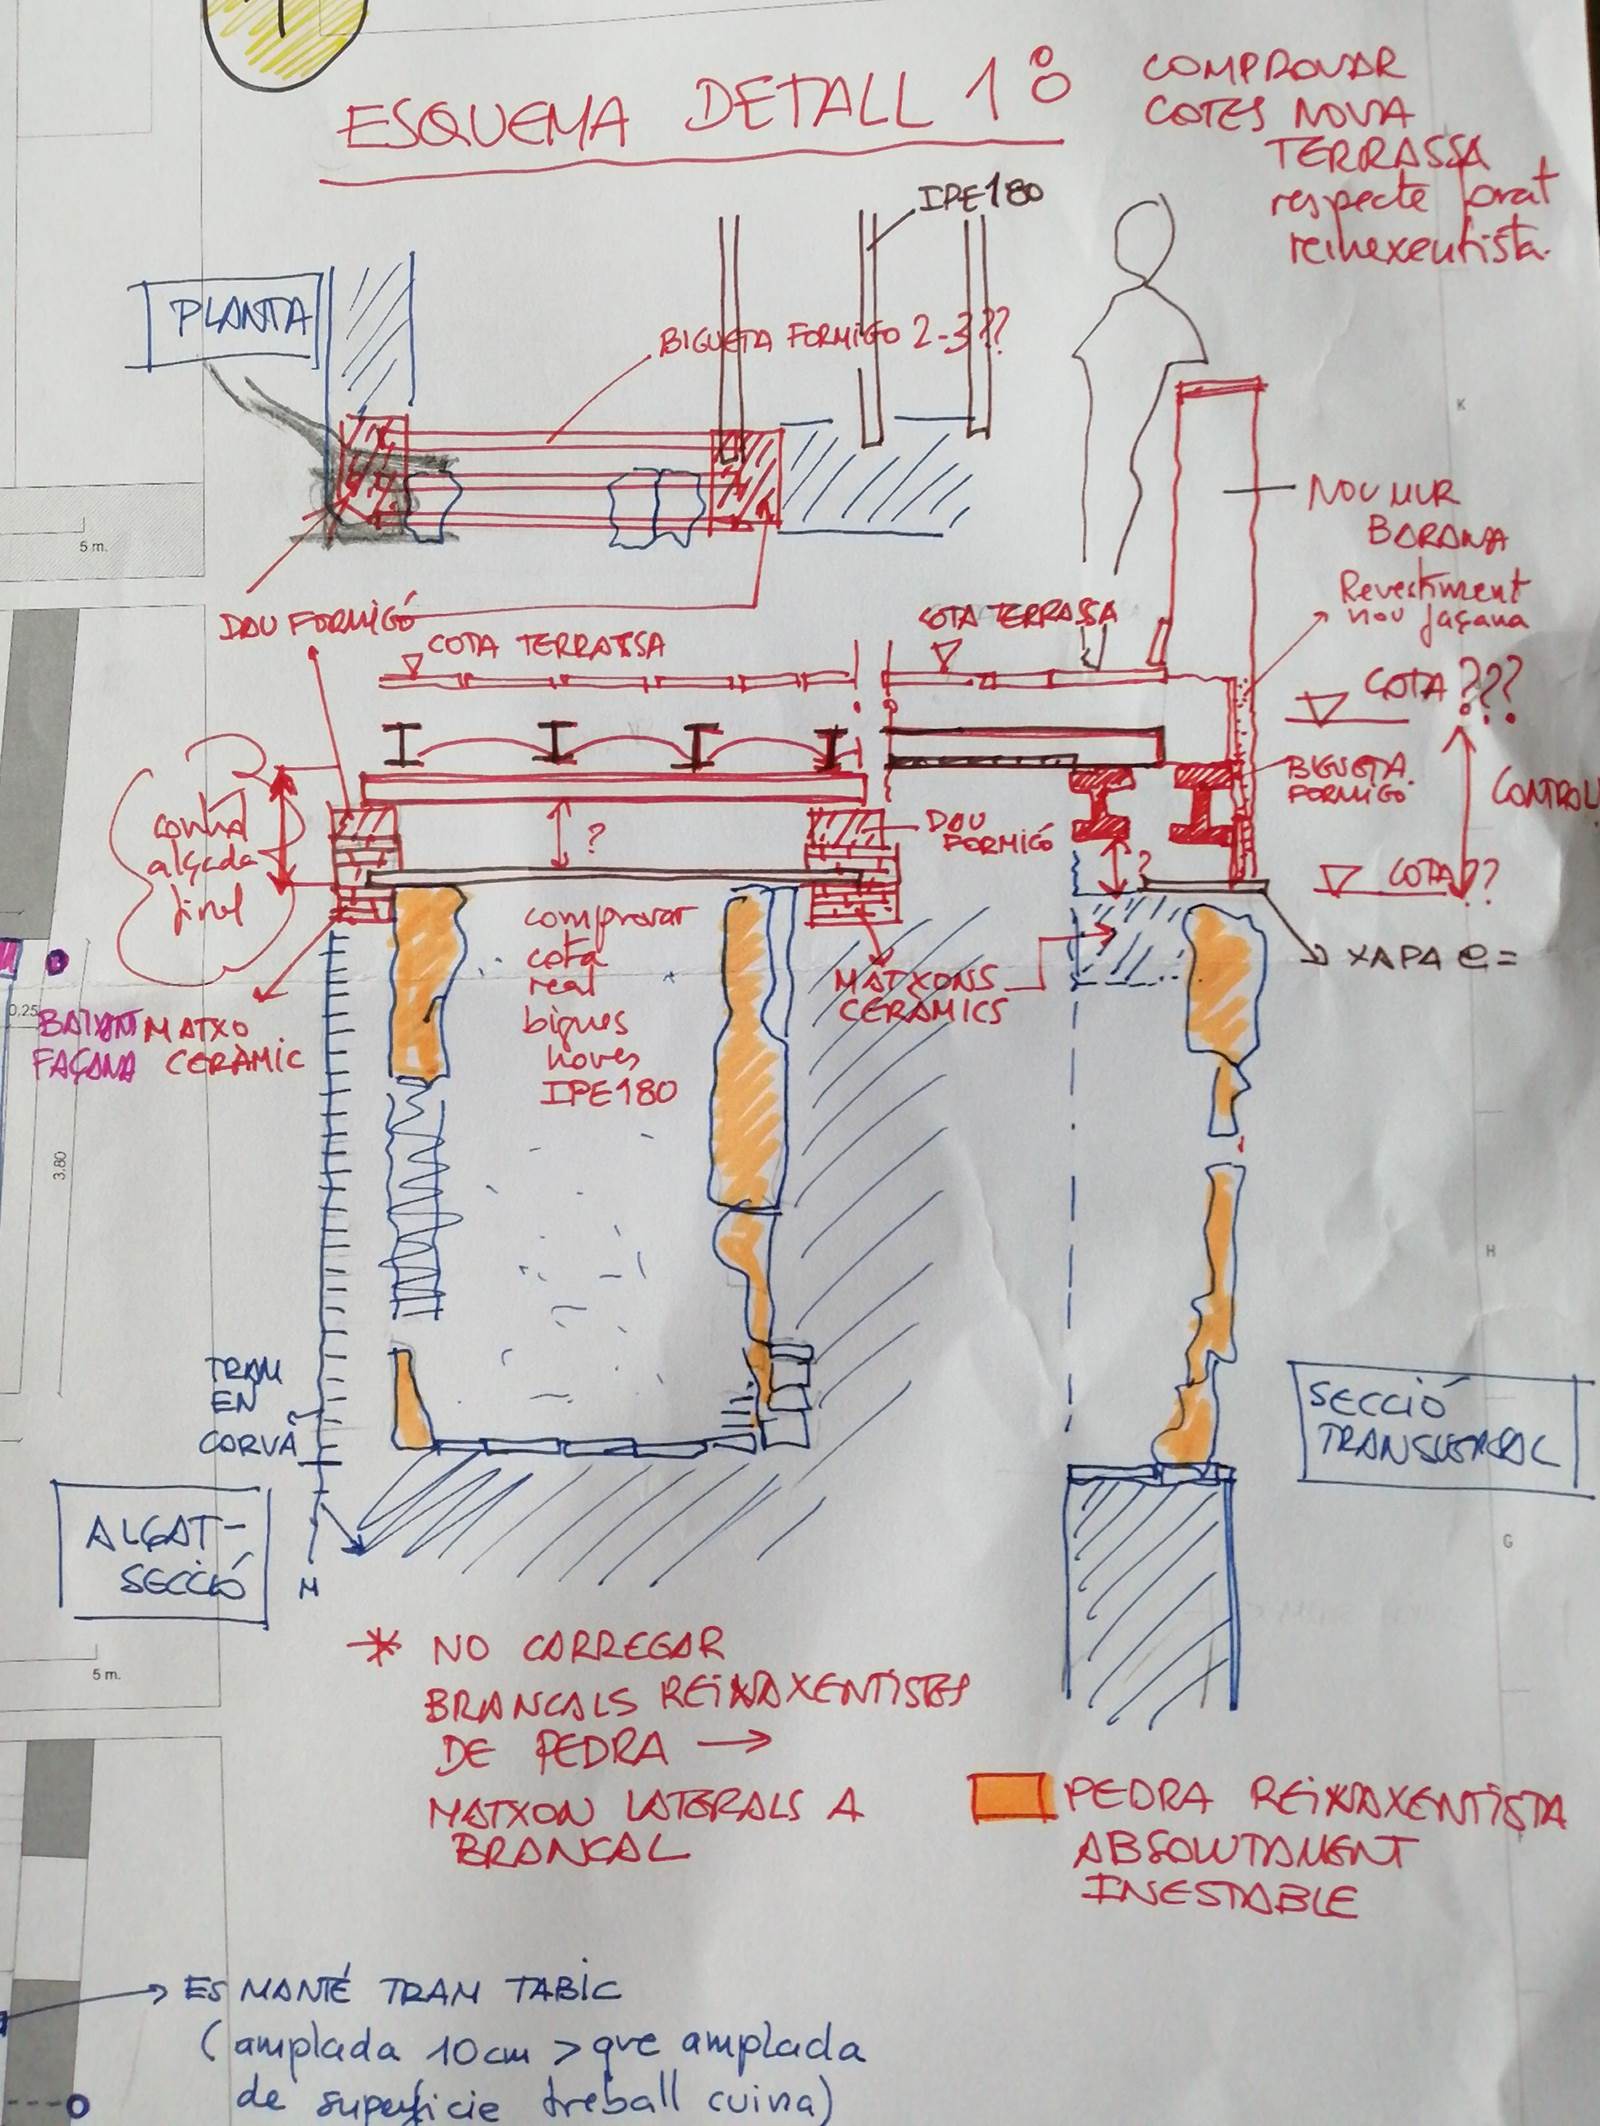 ESQUEMA DETALL 1º
COMPROVAR
COTES NOVA
TERRASSA
respecte forat
reinexentista.
IPE180
PLANTA
BIGUETA FORMIGO 2-3??
NOU MUR
BARANA
Revestiment
nou façana
DAU FORMIGÓ
COTA TERRASSA
COTA TERRASSA
COTA ???
BIGUETA
FORMIGÓ
CONTROL!
control
alçada
final
?
DAU
FORMIGÓ
?
COTA??
comprovar
cota
real
bigues
noves
IPE180
MATXONS
CERAMICS
XAPA e=
0,25
BAIXANT
FAÇANA
MATXO
CERÀMIC
3.80
TRAM
EN
CORVA
SECCIÓ
TRANSVERSAL
ALÇAT-
SECCIÓ
* NO CARREGAR
BRANCALS REINAXENTISTES
DE PEDRA →
MATXON LATERALS A
BRANCAL
PEDRA REINAXENTISTA
ABSOLUTAMENT
INESTABLE
→ ES MANTÉ TRAM TABIC
(amplada 10cm > que amplada
de superficie treball cuina)
5 m.
5 m.
K
H
G